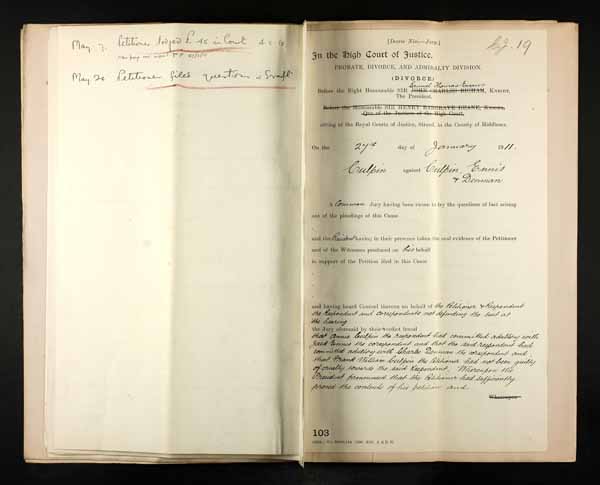 May. 7. Petitioner lodged £45 in Court
May 20 Petitioner files questions in draft
[Decree Nisi—Jury]
19
In the High Court of Justice.
PROBATE, DIVORCE, AND ADMIRALTY DIVISION.
(DIVORCE)
Samuel Thomas Evans
Before the Right Honourable SIR JOHN CHARLES BIGHAM, KNIGHT,
The President.
Before the Honourable SIR HENRY BARGRAVE DEANE, KNIGHT,
One of the Justices of the High Court,
sitting at the Royal Courts of Justice, Strand, in the County of Middlesex.
On the 27th day of January 1911.
Culpin against Culpin, Ennis
& Denman
A Common Jury having been sworn to try the questions of fact arising
out of the pleadings of this Cause
and the President having in their presence taken the oral evidence of the Petitioner
and of the Witnesses produced on his behalf
in support of the Petition filed in this Cause
and having heard Counsel thereon on behalf of the Petitioner & Respondent
the Respondent and Corespondents not defending the suit at
the hearing
the Jury returned by their verdict found
that Annie Culpin the respondent had committed adultery with
Jack Ennis the corespondent and that the said respondent had
committed adultery with Charles Denman the corespondent and
that Frank William Culpin the Petitioner had not been guilty
of cruelty towards the said Respondent. Whereupon the
President pronounced that the Petitioner had sufficiently
proved the contents of his petition and
Whereupon
103